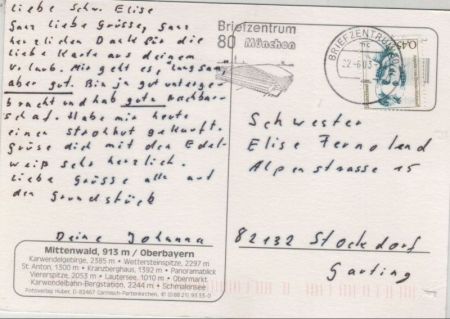 Liebe Schw. Elise
Ganz liebe Grüsse, ganz
herzlichen Dank für die
liebe Karte aus deinem
Urlaub. Mir geht es, langsam,
aber gut. Bin ja gut unterge-
bracht und hab gute Nachbar-
schaf. Habe mir heute
einen Strohhut gekauft.
Grüse dich mit den Edel-
weiß sehr herzlich.
Liebe Grüsse alle auf
den Grundstück
Deine Johanna
Mittenwald, 913 m / Oberbayern
Karwendelgebirge, 2385 m • Wettersteinspitze, 2297 m
St. Anton, 1300 m • Kranzberghaus, 1392 m • Panoramablick
Viererspitze, 2053 m • Lautersee, 1010 m • Obermarkt
Karwendelbahn-Bergstation, 2244 m • Schmalensee
Fotoverlag Huber, D-82467 Garmisch-Partenkirchen,
Briefzentrum
80 München
BRIEFZENTRUM
0,45
Schwester
Elise
Alpenstrasse 15
82132 Stockdorf
Gauting